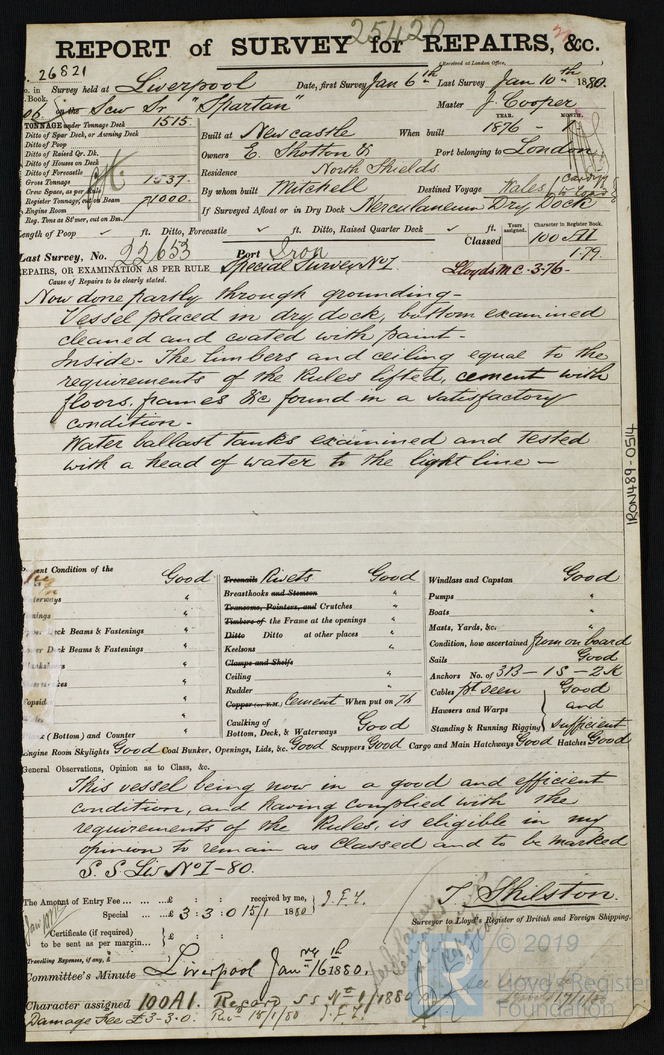 25420
REPORT of SURVEY for REPAIRS, &c.
26821
(Received at London Office,
Survey held at Liverpool Date, first Survey Jan 6th Last Survey Jan 10th 1880.
Book.
on the Scw Sr "Spartan" Master J. Cooper
TONNAGE under Tonnage Deck 1515
Ditto of Spar Deck, or Awning Deck
Ditto of Poop
Ditto of Raised Qr. Dk.
Ditto of Houses on Deck
Ditto of Forecastle
Gross Tonnage 1537
Crew Space, as per Rule
Register Tonnage, cut on Beam 1000
Engine Room
Reg. Tons as St'mer, cut on Bm.
YEAR. MONTH.
Built at Newcastle When built 1876 -
Owners E. Shotton & Co Port belonging to London
Residence North Shields
By whom built Mitchell Destined Voyage Wales
If Surveyed Afloat or in Dry Dock Herculaneum Dry Dock
Length of Poop ft. Ditto, Forecastle ft. Ditto, Raised Quarter Deck ft.
Years assigned. Character in Register Book.
Classed 100 A1
1.79.
Last Survey, No. 22653 Port Iron
REPAIRS, OR EXAMINATION AS PER RULE Special Survey No 1 Lloyds MC - 3-76 -
Cause of Repairs to be clearly stated.
Now done partly through grounding -
Vessel placed in dry dock, bottom examined
cleaned and coated with paint -
Inside - The limbers and ceiling equal to the
requirements of the Rules lifted, cement with
floors, frames &c found in a satisfactory
condition -
Water ballast tanks examined and tested
with a head of water to the light line -
IRON489-0514
Condition of the Good
Deck Beams & Fastenings "
Deck Beams & Fastenings "
Topsid "
(Bottom) and Counter "
Treenails Rivets Good
Breasthooks and Stemson "
Transoms, Pointers, and Crutches "
Timbers of the Frame at the openings "
Ditto Ditto at other places "
Keelsons "
Clamps and Shelfs
Ceiling "
Rudder "
Copper (or Y.M.) Cement When put on 76
Caulking of
Bottom, Deck, & Waterways Good
Windlass and Capstan Good
Pumps "
Boats "
Masts, Yards, &c. "
Condition, how ascertained from on board
Sails Good
Anchors No. of 3B - 1S - 2K
Cables pt seen Good
Hawsers and Warps and
Standing & Running Rigging sufficient
Engine Room Skylights Good Coal Bunker, Openings, Lids, &c. Good Scuppers Good Cargo and Main Hatchways Good Hatches Good
General Observations, Opinion as to Class, &c.
This vessel being now in a good and efficient
condition, and having complied with the
requirements of the Rules, is eligible in my
opinion to remain as Classed and to be marked
S.S Liv No 1 - 80.
The Amount of Entry Fee ... £ : : received by me,
Special ... £ 3 : 3 : 0 15/1 1880
Certificate (if required)
to be sent as per margin...
Travelling Expenses, if any, £
T. Shilston.
Surveyor to Lloyd's Register of British and Foreign Shipping.
Committee's Minute Liverpool Jany 16th 1880.
Character assigned 100A1. Record SS No 1/1880
Damage Fee £3-3-0. Recd 15/1/80
© 2019
Lloyd's Register
Foundation